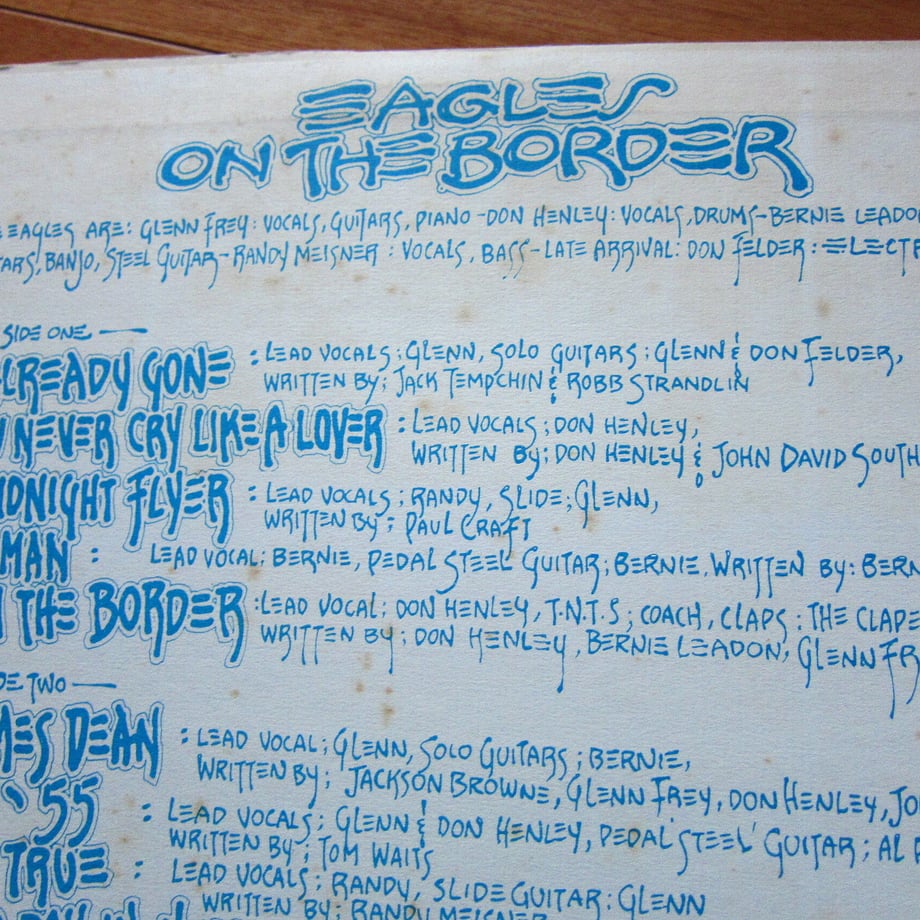 EAGLES
ON THE BORDER
EAGLES ARE: GLENN FREY: VOCALS, GUITARS, PIANO - DON HENLEY: VOCALS, DRUMS - BERNIE LEADO
TARS, BANJO, STEEL GUITAR - RANDY MEISNER : VOCALS, BASS - LATE ARRIVAL: DON FELDER : ELECTR
SIDE ONE —
LREADY GONE : LEAD VOCALS ; GLENN, SOLO GUITARS ; GLENN & DON FELDER,
WRITTEN BY; JACK TEMPCHIN & ROBB STRANDLIN
NEVER CRY LIKE A LOVER : LEAD VOCALS ; DON HENLEY,
WRITTEN BY; DON HENLEY & JOHN DAVID SOUTH
IDNIGHT FLYER : LEAD VOCALS ; RANDY, SLIDE; GLENN,
WRITTEN BY ; PAUL CRAFT
MAN : LEAD VOCAL; BERNIE, PEDAL STEEL GUITAR; BERNIE, WRITTEN BY: BERN
THE BORDER : LEAD VOCAL; DON HENLEY, T.N.T.S ; COACH, CLAPS ; THE CLAPE
WRITTEN BY ; DON HENLEY, BERNIE LEADON, GLENN FR
DE TWO —
MES DEAN : LEAD VOCAL; GLENN, SOLO GUITARS ; BERNIE,
WRITTEN BY; JACKSON BROWNE, GLENN FREY, DON HENLEY, JO
'55 : LEAD VOCALS ; GLENN & DON HENLEY, PEDAL STEEL GUITAR ; AL P
WRITTEN BY ; TOM WAITS
TRUE : LEAD VOCALS ; RANDY, SLIDE GUITAR : GLENN
WRITTEN BY; RANDY MEISNER